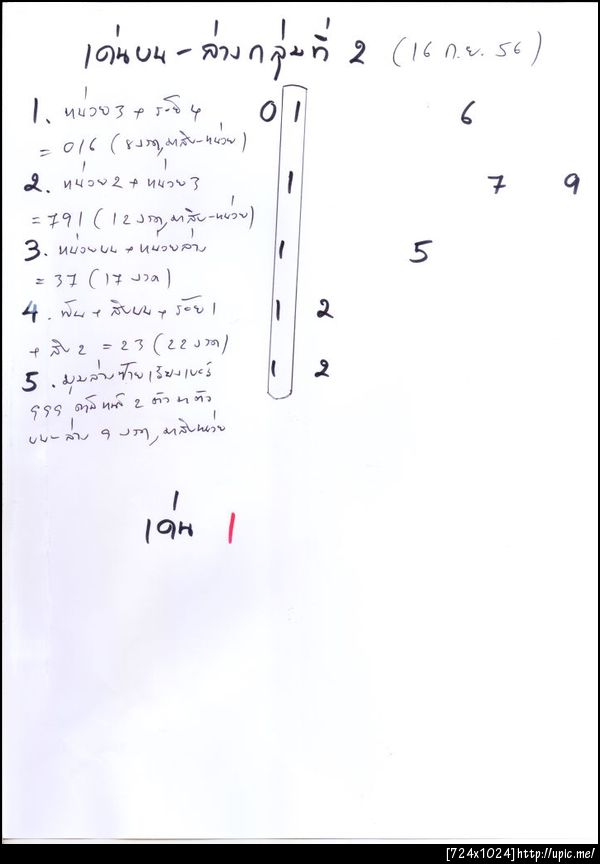 เด่นบน - ล่างกลุ่มที่ 2 (16 ก.ย. 56)
1. หน่วย 3 + ร้อย 4 0 1 6
= 016 (8 งวด, มาสิบ-หน่วย)
2. หน่วย 2 + หน่วย 3 1 7 9
= 791 (12 งวด, มาสิบ-หน่วย)
3. หน่วยบน + หน่วยล่าง 1 5
= 37 (17 งวด)
4. พัน + สิบบน + ร้อย 1 1 2
+ สิบ 2 = 23 (22 งวด)
5. มุมล่างซ้ายเรียงเบอร์ 1 2
2 ตัว มาตัว
บน-ล่าง 9 งวด, มาสิบหน่วย
เด่น 1
[724x1024]http://upic.me/